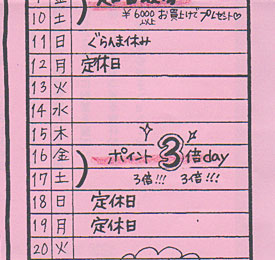 10 土 ¥6000以上お買上げでプレゼント♡
11 日 ぐらんま休み
12 月 定休日
13 火
14 水
15 木
16 金 ポイント3倍day
17 土 3倍!!! 3倍!!!
18 日 定休日
19 月 定休日
20 火